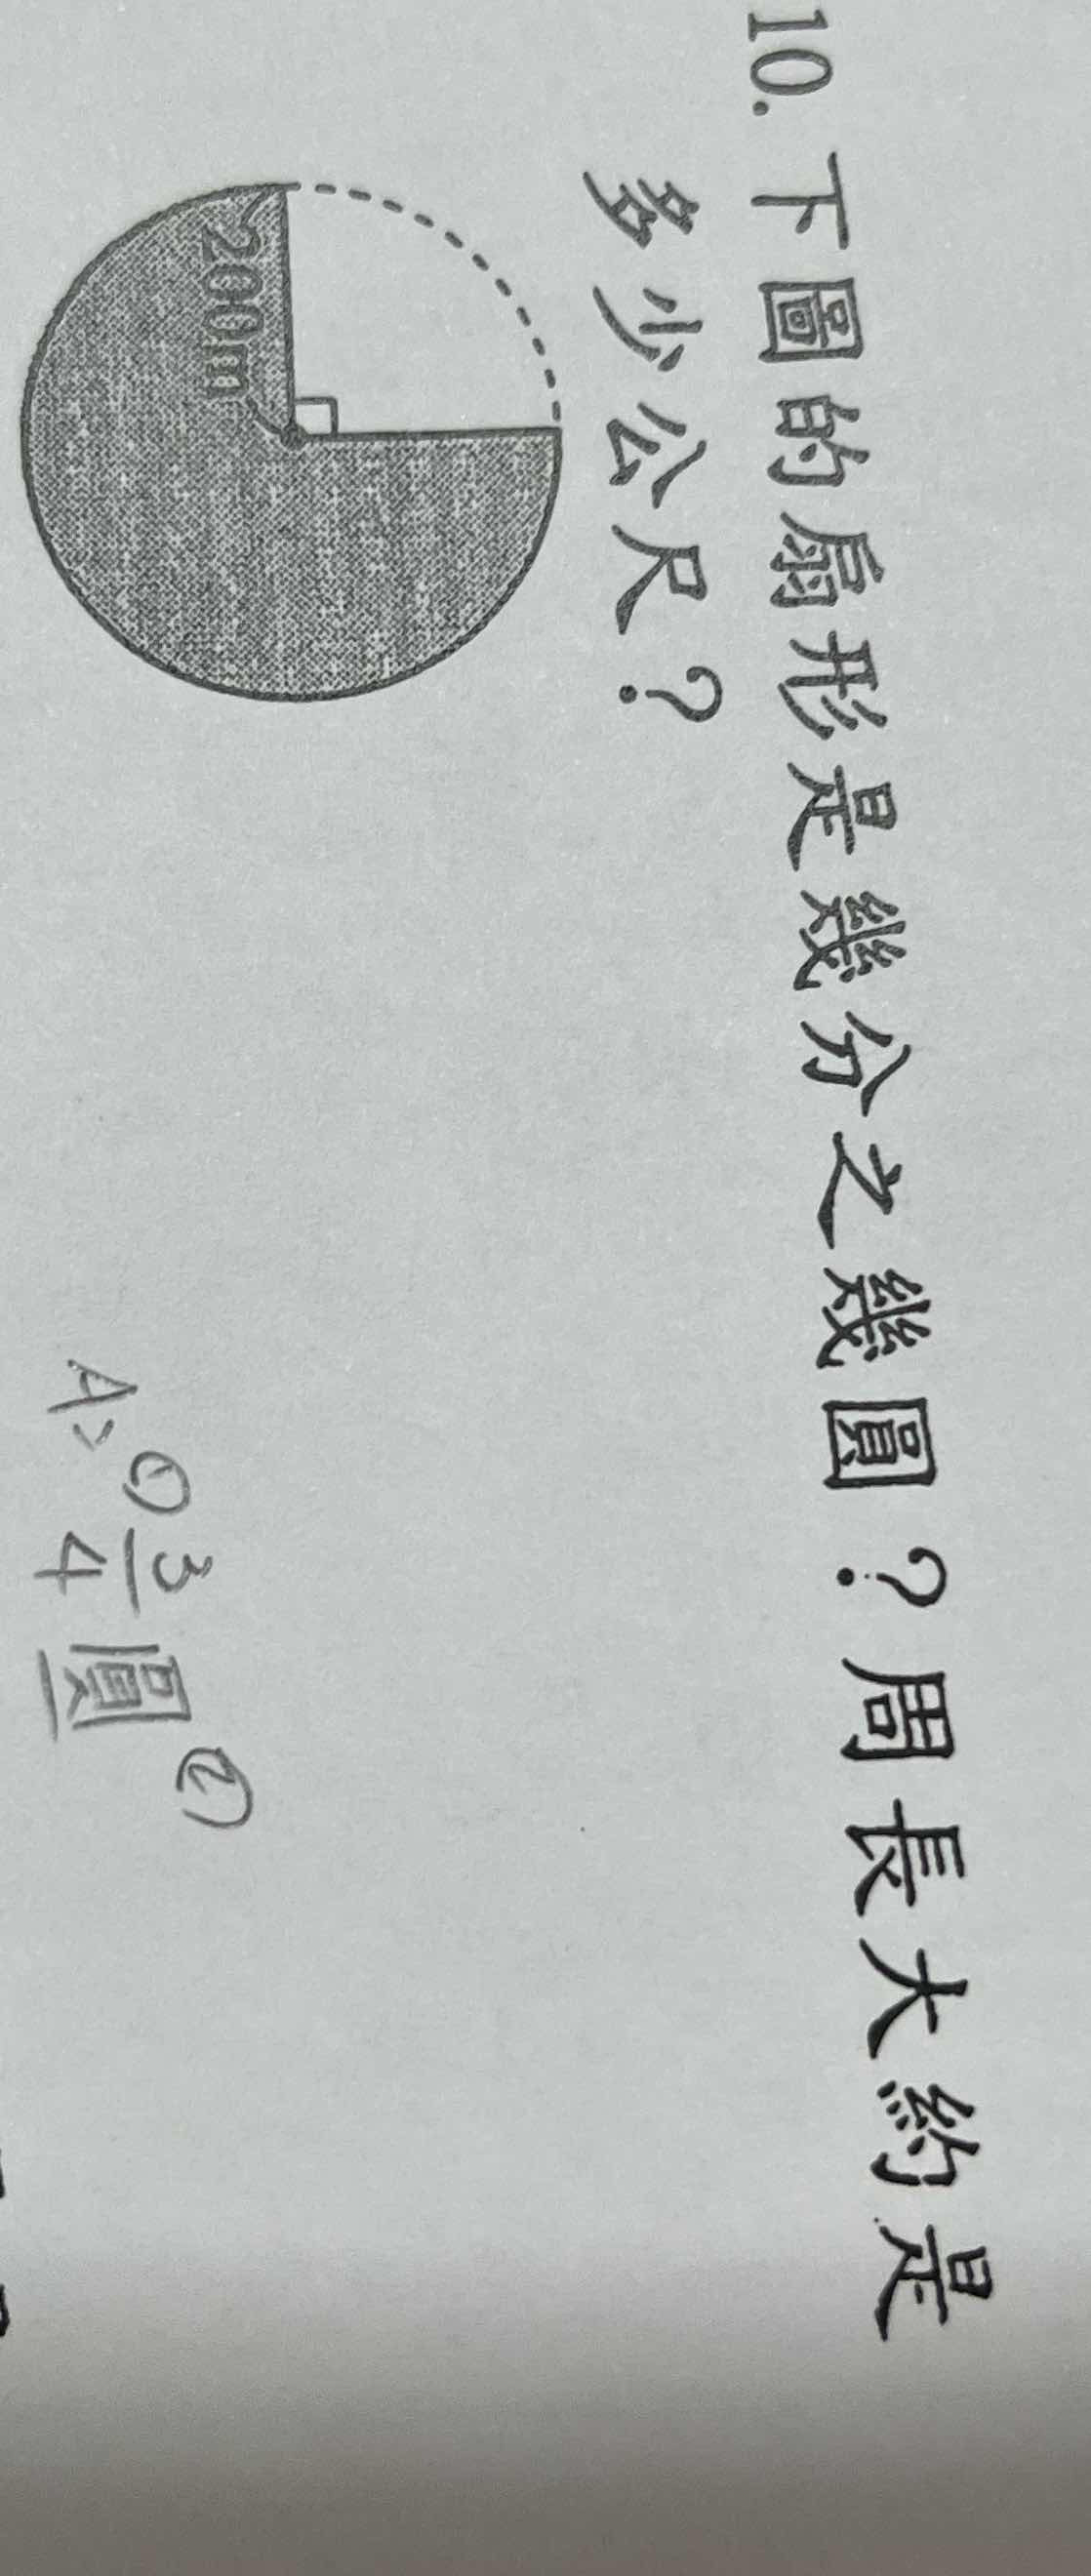 10. 下圖的扇形是幾分之幾圓？周長大約是
多少公尺？
200m
A> ① 3/4 圓 ②